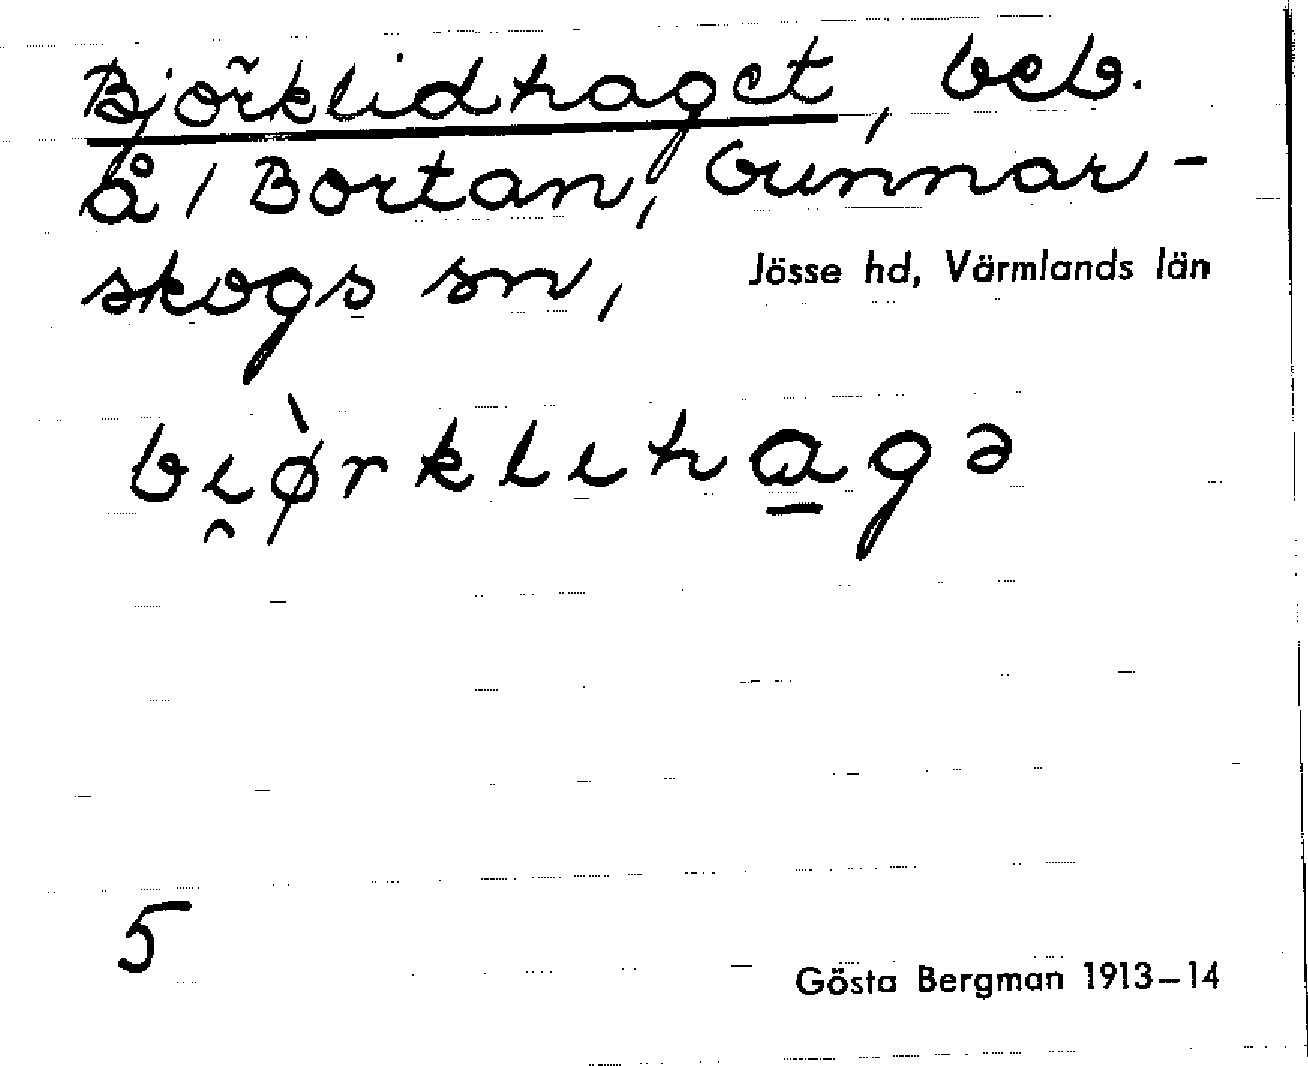 Björklidhaget, beb.
å 1 Bortan, Gunnar-
skogs sn, Jösse hd, Värmlands län
bi̯ø̀rklıha̲gə
5
Gösta Bergman 1913–14